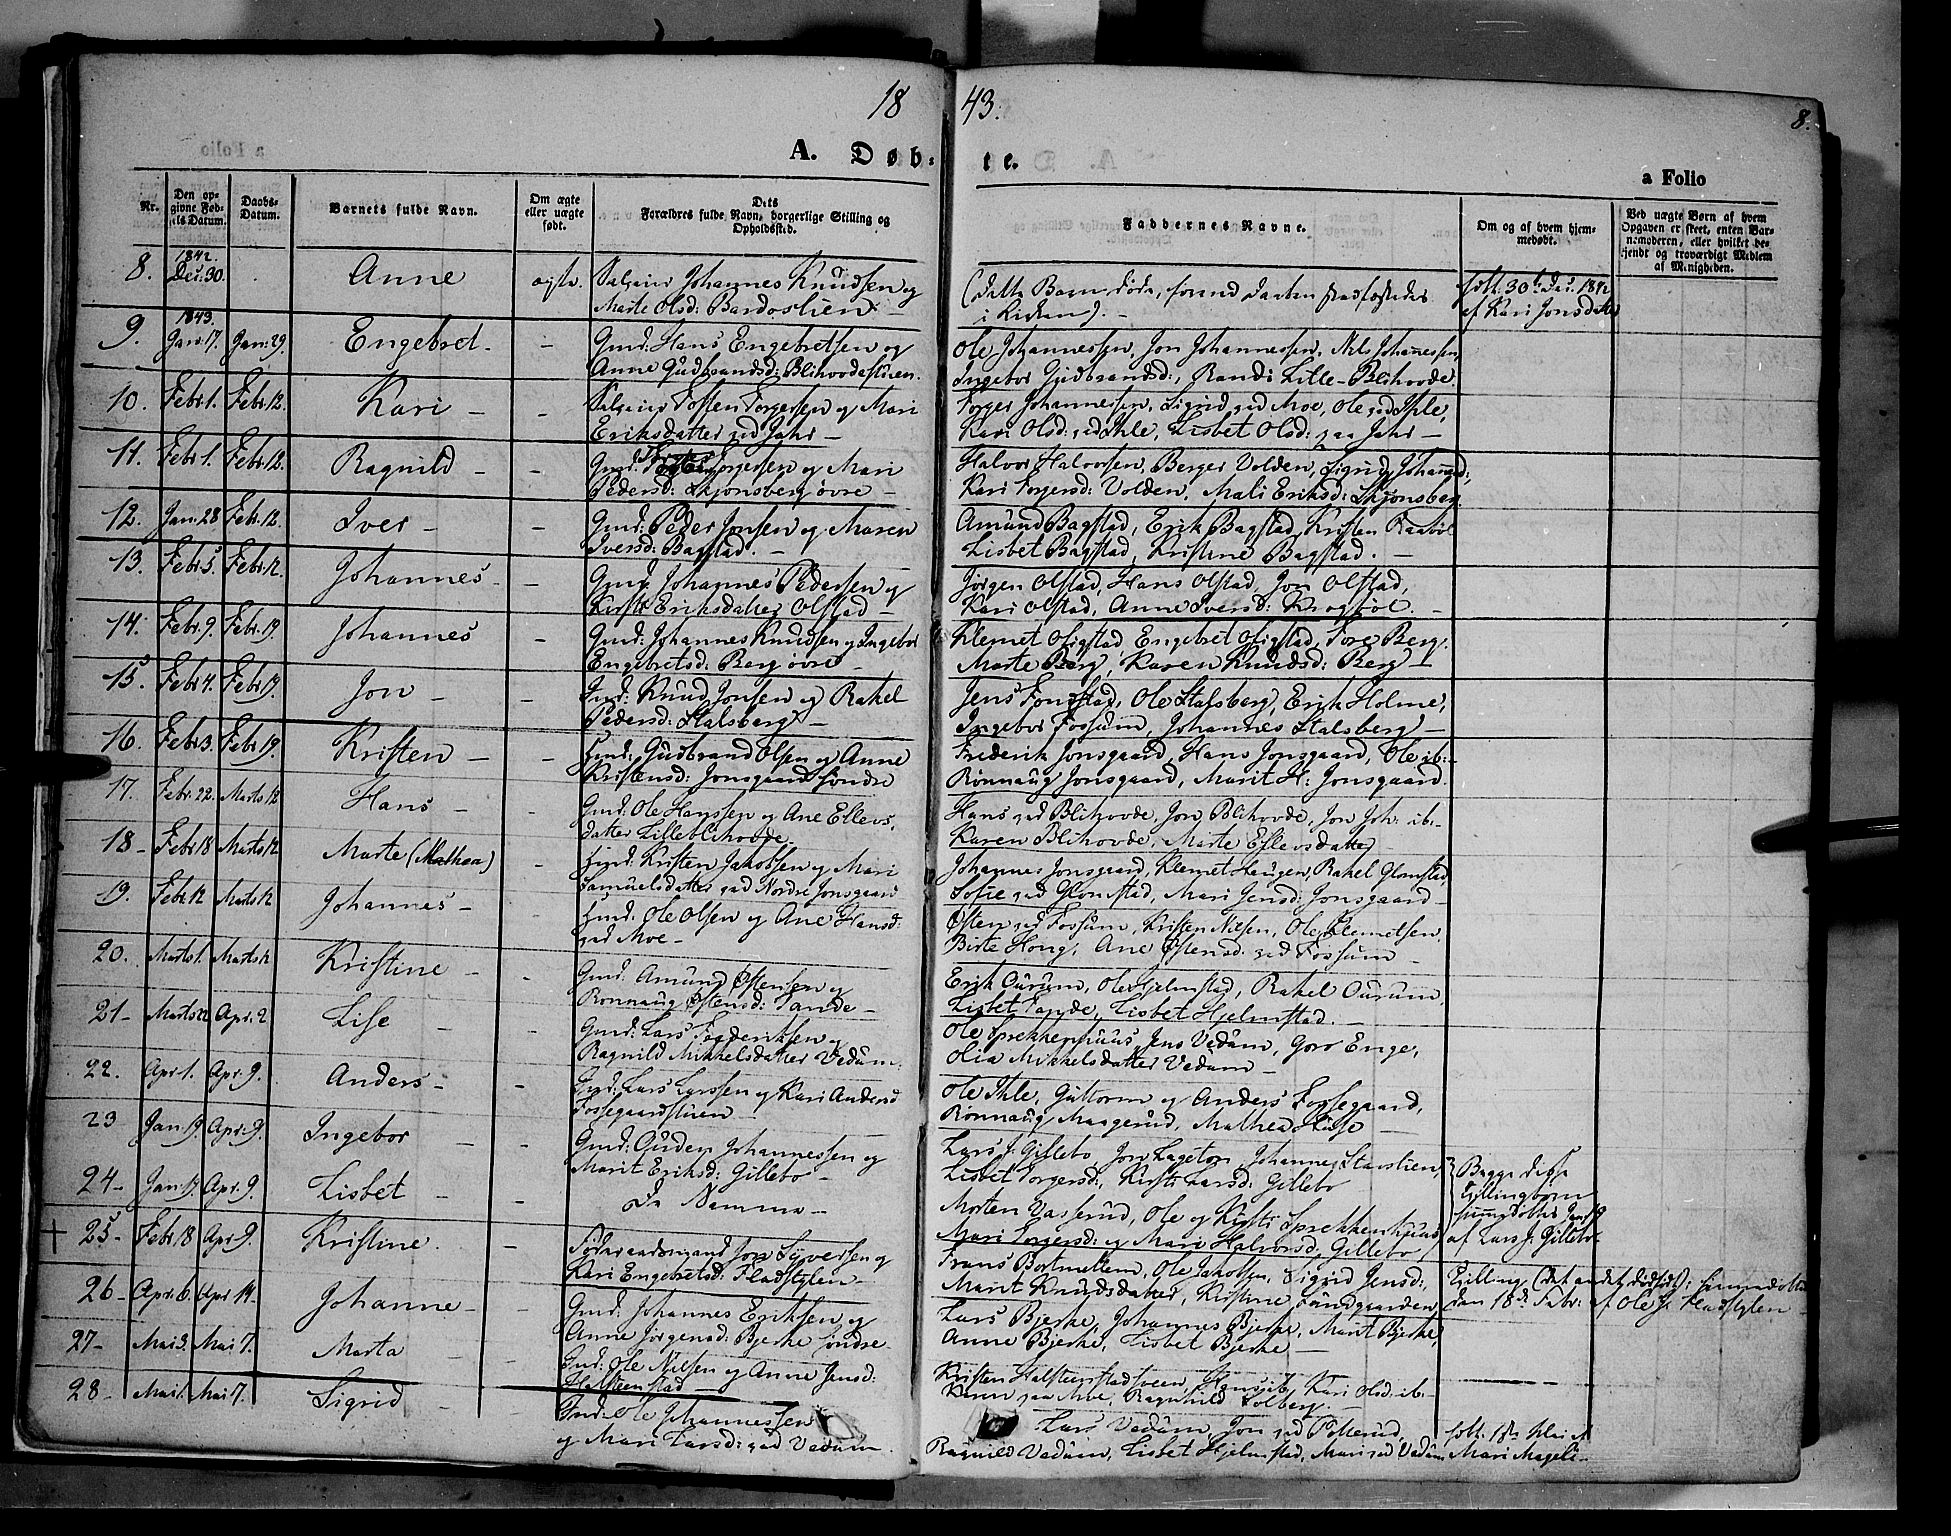 18 43.
8.
A. Døb- te.
a Folio
Nr.
Den opgivne Fødsels Datum.
Daabs-Datum.
Barnets fulde Navn.
Om ægte eller uægte født.
Dets Forældres fulde Navn, borgerlige Stilling og Opholdssted.
Faddernes Navne.
Om og af hvem hjemmedøbt.
Ved uægte Børn af hvem Opgaven er skeet, enten Barnemoderen, eller hvilket bekjendt og troværdigt Medlem af Menigheden.
8. 1842. Dec. 30. Anne ægte. Johannes Knudsen og
Marte Olsd: Bardoslien
(dette Barn døde, forend Daaben
i Kirken). -
30te Dec. 1842
af Kari Jonsdatter
9. 1843. Jan: 17. Jan: 29. Engebret - - Gmd: Hans Engebretsen og
Anne Gudbrandsd: Blihovdestuen.
Ole Johannessen, Jon Johannessen, Nils Johannessen,
Ingebor Gudbrandsd:, Randi Lille-Blihovde.
10. Febr. 1. Febr. 12. Kari - - Tosten Torgersen og Mari
Eriksdatter ved Jahr -
Torger Johannessen, Sigrid ved Moe, Ole ved Ihle,
Kari Olsd: ved Ihle, Lisbet Olsd: paa Jahr -
11. Febr. 1. Febr. 12. Ragnild - - Gmd: Torgersen og Mari
Pedersd: Skjønsberg øvre -
Halvor Halvorsen, Berger Volden, Sigrid Johansd:,
Kari Torgersd: Volden, Mali Eriksd: Skjønsberg.
12. Jan: 28 Feb. 12. Iver - - Gmd: Peder Jonsen og Maren
Iversd: Bagstad. -
Amund Bagstad, Erik Bagstad, Kristen Raabøl
Lisbet Bagstad, Kristine Bagstad. -
13. Febr. 5. Febr. 12. Johannes - - Gmd: Johannes Pedersen og
Kirsti Eriksdatter Olstad -
Jørgen Olstad, Hans Olstad, Jon Olstad,
Kari Olstad, Anne Iversd: Krogbøl. -
14. Febr. 9. Febr. 19. Johannes - Gmd: Johannes Knudsen og Ingebor
Engebretsd: Berg øvre -
Klemet Oligstad, Engebret Oligstad, Tore Berg.
Marte Berg, Karen Knudsd: Berg -
15. Febr. 4. Febr. 19. Jon - - Gmd: Knud Jonsen og Rakel
Pedersd: Stalsberg -
Jens Fonstad, Ole Stalsberg, Erik Holme,
Ingebor Fossum, Johannes Stalsberg -
16. Febr. 3. Febr. 19. Kristen - - Gmd: Gudbrand Olsen og Anne
Kristensd: Jonsgaard søndre
Frederik Jonsgaard, Hans Jonsgaard, Ole ib:-
Rønnaug Jonsgaard, Marit H: Jonsgaard.
17. Febr. 22. Marts 12 Hans - Gmd: Ole Hanssen og Ane Ellevs.
datter Lilleblihovde
Hans ved Blihovde, Jon Blihovde, Jon Joh: ib:-
Karen Blihovde, Marte Ellevsdatter
18 - Febr. 18 Marts 12 Marte (Mathea) - Gmd: Kristen Jakobsen og Mari
Samuelsdatter ved Nordre Jonsgaard
Johannes Jonsgaard, Klemet Haugen, Rakel Glomstad,
Sofie ved Glomstad, Mari Jensd: Jonsgaard -
19. Febr. 12 Marts 12 Johannes - - Gmd: Ole Olsen og Ane Hansd:
ved Moe -
Østen ved Fossum, Kristen Nielsen, Ole Klemetsen,
Birte Hong, Ane Østensd: ved Fossum -
20. Marts 1. Marts 12 Kristine - - Gmd: Amund Østensen og
Rønnaug Østensd: Tande -
Erik Ourum, Ole Hjelmstad, Rakel Ourum,
Lisbet Tande, Lisbet Hjelmstad. -
21 - Marts 22 Apr. 2 Lise - - Gmd: Lars Frederiksen og
Ragnild Mikkelsdatter Vedum.
Ole Sprekkenhuus, Jens Vedum, Goro Enge,
Olia Mikkelsdatter Vedum -
22. Apr. 1. Apr. 9. Anders - - Gmd: Lars Larssen og Kari Andersd
Fossegaardstuen
Ole Ihle, Guttorm og Anders Fossegaard,
Rønnaug Maagerud, Mathea -
23 Jan. 19. Apr. 9. Ingebor - - Gmd: Guden Johannessen og
Marit Eriksd: Gillebo -
Lars J. Gillebo, Jon Lageton, Johannes
Lisbet Torgersd:, Kirsti Larsd: Gillebo
Begge disse
Tvillingbørn
hjemmedøbte Jan. 19
af Lars J. Gillebo
24 - Jan. 19. Apr. 9. Lisbet - - De Samme -
Morten Vasserud, Ole og Kirsti Sprekkenhuus
Mari Torgersd: og Mari Halvorsd, Gillebo
+ 25 - Febr 18 Apr. 9. Kristine. - Føderaadsmand Jon Syversen og
Kari Engebretsd: Fladstylen -
Frans Botnellem, Ole Jakobsen, Sigrid Jensd:
Marit Knudsdatter, Kristine Sundgaarden
Tvilling (det andet dødfødt): hjemmedøbt
den 18de Febr: af Ole J. Fladstylen
26 - Apr. 6. Apr 14. Johanne - - Gmd: Johannes Eriksen og
Anne Jørgensd: Bjerke søndre.
Lars Bjerke, Johannes Bjerke, Marit Bjerke,
Anne Bjerke, Lisbet Bjerke -
27 - Mai 3. Mai 7. Marta - - Gmd: Ole Nielsen og Anne Jensd:
Halsteenstad -
Kristen Halsteenstadsveen, Hans ib, Kari Olsd: ib:-
paa Moe, Ragnhild Solberg. -
28 - Mai 1. Mai 7. Sigrid - - Gmd: Ole Johannessen
og Mari Larsd: ved Vedum.
Lars Vedum, Jon ved Potterud,
Ragnild Vedum, Lisbet Hjelmstad, Mari ved Vedum
Mari Mageli -